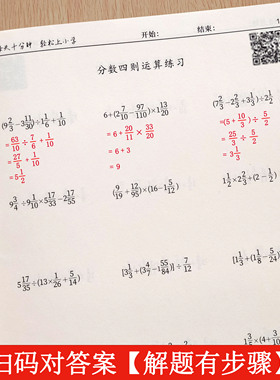 每天十分钟 轻松上小学
开始: 结束:
分数四则运算练习
(9 2/3 - 3 11/30) ÷ 1 1/6 + 1/10
= 63/10 ÷ 7/6 + 1/10
= 27/5 + 1/10
= 5 1/2
6 + (2 7/10 - 97/110) × 1 13/20
= 6 + 20/11 × 33/20
= 6 + 3
= 9
(7 2/3 - 2 2/3 + 3 1/3) ÷ 2 1/2
= (5 + 10/3) ÷ 5/2
= 25/3 ÷ 5/2
= 3 1/3
9 3/4 ÷ 9 1/10 × 5 17/33 - 2 17/55
(9/19 + 12/95) × (16 - 1 5/12)
1 1/2 × 2 2/3 + (2 - 1
5 17/35 ÷ (13 × 1/26 + 5/14)
[3 1/3 + (3 4/7 - 1 55/84)] ÷ 7/12
[1 1/3 + (1 1/8 - 5/24)
扫码对答案【解题有步骤】